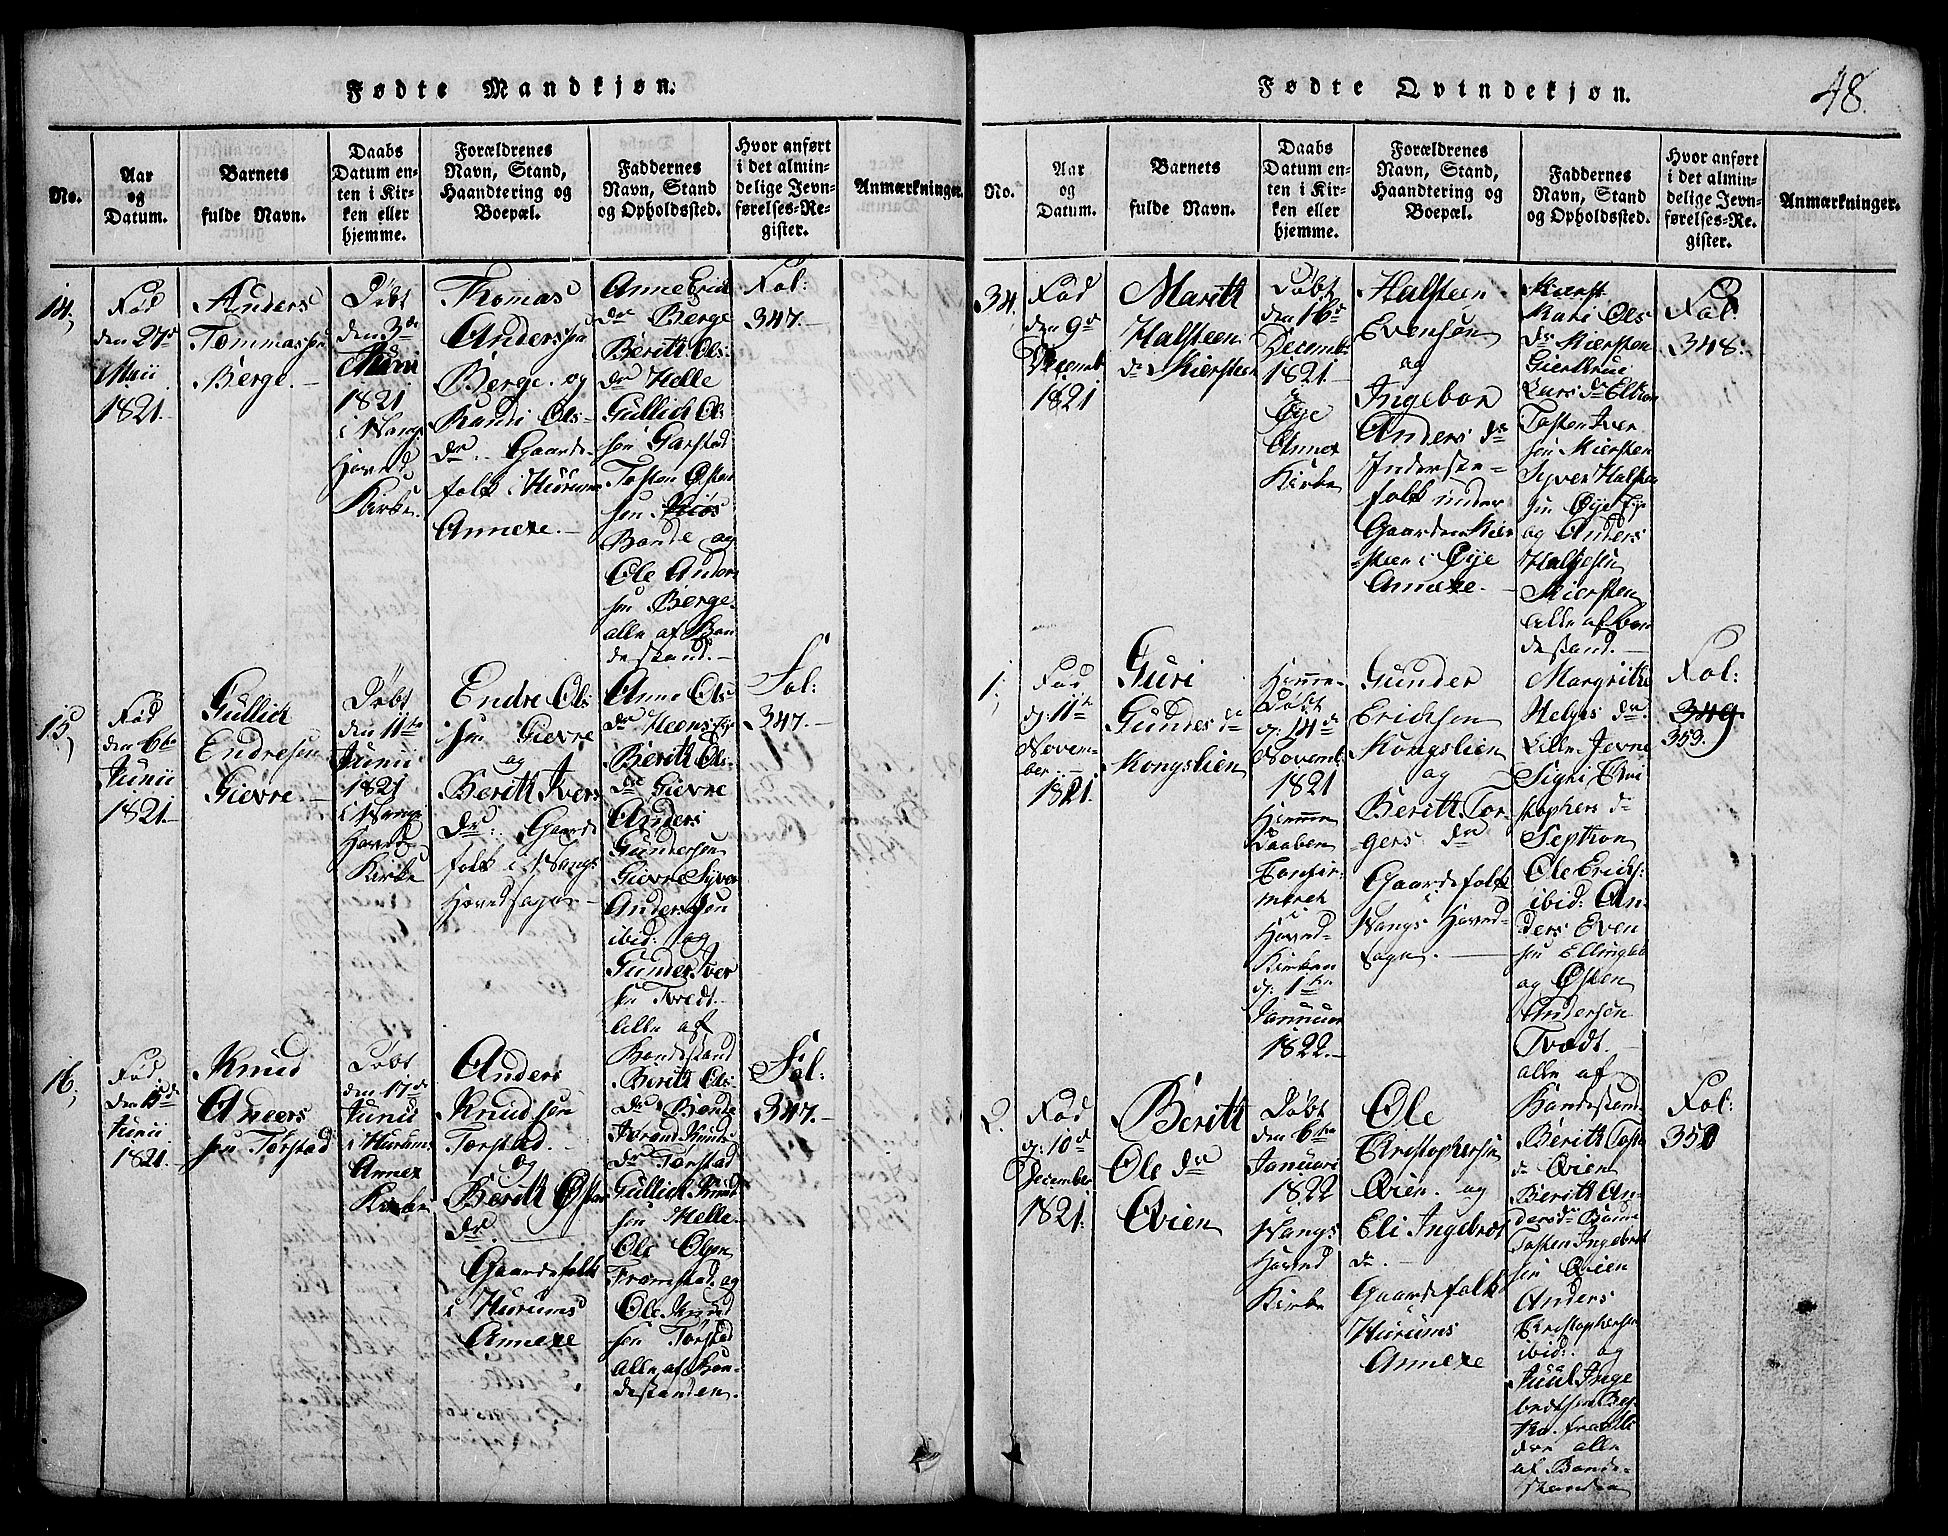 Fødte Mandkjøn.
No.
Aar
og
Datum.
Barnets
fulde Navn.
Daabs
Datum en-
ten i Kir-
ken eller
hjemme.
Forældrenes
Navn, Stand,
Haandtering og
Boepæl.
Faddernes
Navn, Stand
og Opholdssted.
Hvor anført
i det almin-
delige Jevn-
førelses-Re-
gister.
Anmærkninger.
14,
Fød
den 27d
Maii
1821.
Anders
Tommassen
Berge.
Døbt
den 3de
Junii
1821
i Wangs
Hoved
Kirke.
Thomas
Anderssen
Berge. og
Randi Ols-
dr. Gaard-
folk i Hurums
Annexe.
Anne Erich
dr Berge
Beritt Ols:
dr Helle
Gullich Ol-
sen Garstad
Tosten Østen
sen
Bonde og
Ole Ander
sen Berge.
alle af Bon
destand.
Fol:
347.
15,
Fød
den 6te
Junii
1821.
Gullich
Endresen
Gievre.
Døbt
den 11te
Junii
1821
i Wangs
Hoved
Kirke
Endre Ol:
sen Gievre
og
Beritt Ivers
dr: Gaard
folk i Wangs
Hovedsogn
Anne Ols
dr Heensege
Beritt Ol:
dr Gievre
Anders
Gundersen
Gievre Syver
Andersen
ibid: og
Gunder Iver
sen Tvedt.
alle af
Bondestand
Fol:
347.
16,
Fød
den 15de
Junii
1821.
Knud
Aneers
sen Torstad
Døbt
den 17de
Junii
i Hurums
Annex
Kirke
Anders
Knudsen
Torstad.
og
Beritt Østen
dr.
Gaardefolk
i Hurums
Annexe
Beritt Ols
dr Bonde
Jørand Knuds
dr Torstad
Gullich Knud
sen Helle.
Ole Olsen
Framstad og
Ole Knud
sen Torstad
alle af Bon-
destanden.
Fol:
347.
Fødte Qvindekjøn.
48.
No.
Aar
og
Datum.
Barnets
fulde Navn.
Daabs
Datum en-
ten i Kir-
ken eller
hjemme.
Forældrenes
Navn, Stand,
Haandtering og
Boepæl.
Faddernes
Navn, Stand
og Opholdssted.
Hvor anført
i det almin-
delige Jevn-
førelses-Re-
gister.
Anmærkninger.
34,
Fød
den 9d
Decemb
1821
Maritt
Halsteen
dr Kiersteen
Døbt
den 16d
Decemb:
1821.
Øye
Annex
Kirke
Halsteen
Evensøn
og
Ingebor
Anders dr
Inderste-
folk under
Gaarden Kier
steen i Øye
Annexe.
Kierst
Kari Ols
dr Kiersten
Giertrue
Lars dr Elken
Tosten Iver
sen Kiersten
Syver Halsten
sen Øye Eje
og Anders
Halgesen
Kiersten
alle af Bon
destand.
Fol
348:
1,
Fød
d: 11te
Novem-
ber
1821.
Guri
Gundes dr
Kongslien
Hjemme
Døbt
d: 14de
Novemb:
1821
Hjemme
Daaben
Confir-
meret
Hoved-
Kirken
d: 1te
Januar
1822.
Gunder
Ericksen
Kongslien
og
Beritt Tor-
gers dr
Gaardefolk
Wangs Hoved-
Sogn.
Margrithe
Helges dr
Lille Jevne
Sigri Chri
stophers dr
Septhon
Ole Ericks:
ibid: An-
ders Even
sen Ellingbø
og Østen
Andersen
Tvedt.
alle af
Bondestan-
Fol:
349.
353.
2.
Fød
d: 10d
December
1821.
Beritt
Ole dr
Qvien
Døbt
den 6te
Januari
1822
Wangs
Hoved
Kirke
Ole
Christophersen
Qvien. og
Eli Ingebret
dr.
Gaardefolk
Hurums
Annexe
Beritt Toste
dr Qvien
Beritt An-
dersdr Bonne
Tosten Ingebret
sen Qvien
Anders
Christophersen
ibid: og
Juul Inge
bretsen
alle
af Bonde-
standen
Fol:
350